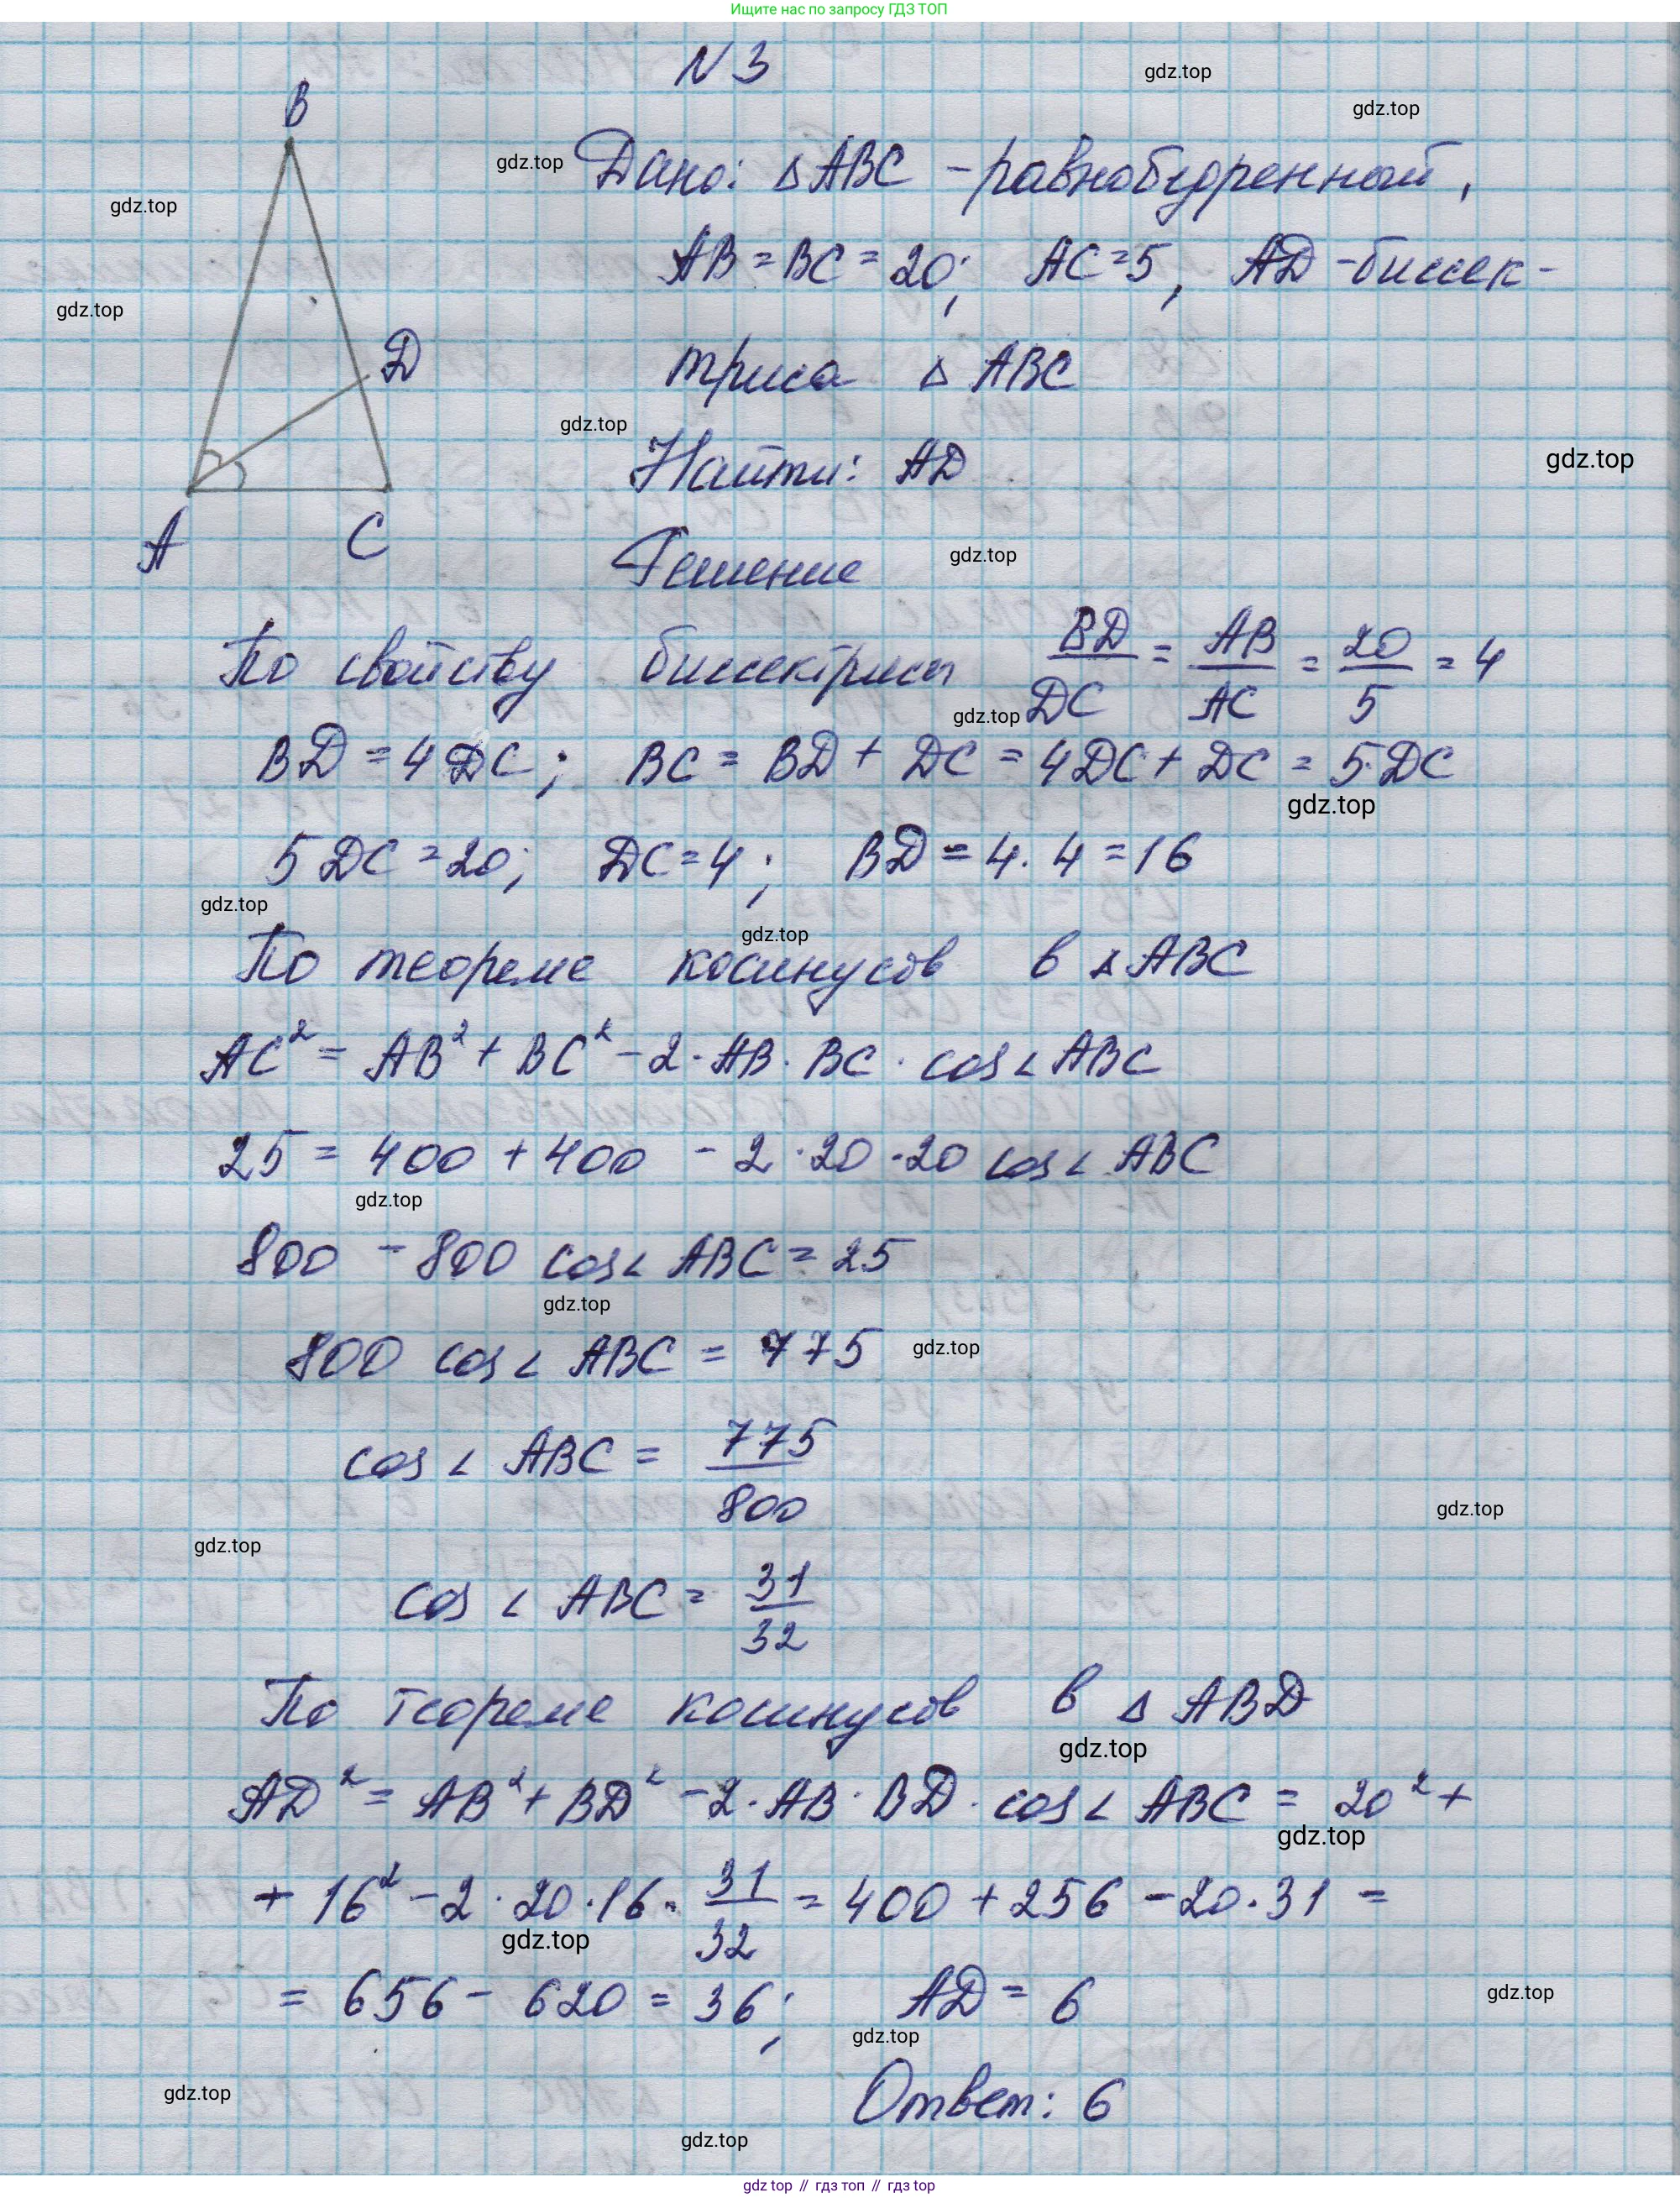 Ищите нас по запросу ГДЗ ТОП
N 3
gdz.top
gdz.top
B
gdz.top
Дано: △ABC - равнобедренный,
gdz.top
AB = BC = 20; AC = 5, AD - биссек-
gdz.top
D
триса △ ABC
gdz.top
Найти: AD
gdz.top
A C
Решение
gdz.top
По свойству биссектрисы BD/DC = AB/AC = 20/5 = 4
gdz.top
BD = 4 DC; BC = BD + DC = 4DC + DC = 5·DC
gdz.top
5 DC = 20; DC = 4; BD = 4·4 = 16
gdz.top
gdz.top
По теореме косинусов в △ABC
AC² = AB² + BC² - 2·AB·BC·cos∠ABC
25 = 400 + 400 - 2·20·20 cos∠ABC
gdz.top
800 - 800 cos∠ABC = 25
gdz.top
800 cos∠ABC = 775
gdz.top
cos∠ABC = 775/800
gdz.top
gdz.top
cos∠ABC = 31/32
По теореме косинусов в △ABD
gdz.top
AD² = AB² + BD² - 2·AB·BD·cos∠ABC = 20² +
gdz.top
+ 16² - 2·20·16·31/32 = 400 + 256 - 20·31 =
gdz.top
= 656 - 620 = 36; AD = 6
gdz.top
gdz.top
gdz.top
Ответ: 6
gdz.top
gdz top // гдз топ // гдз top